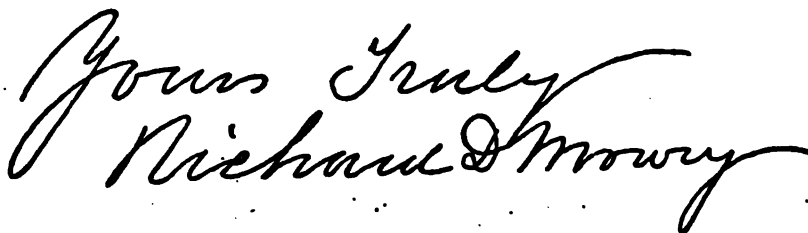 Yours Truly
Richard D Mowry